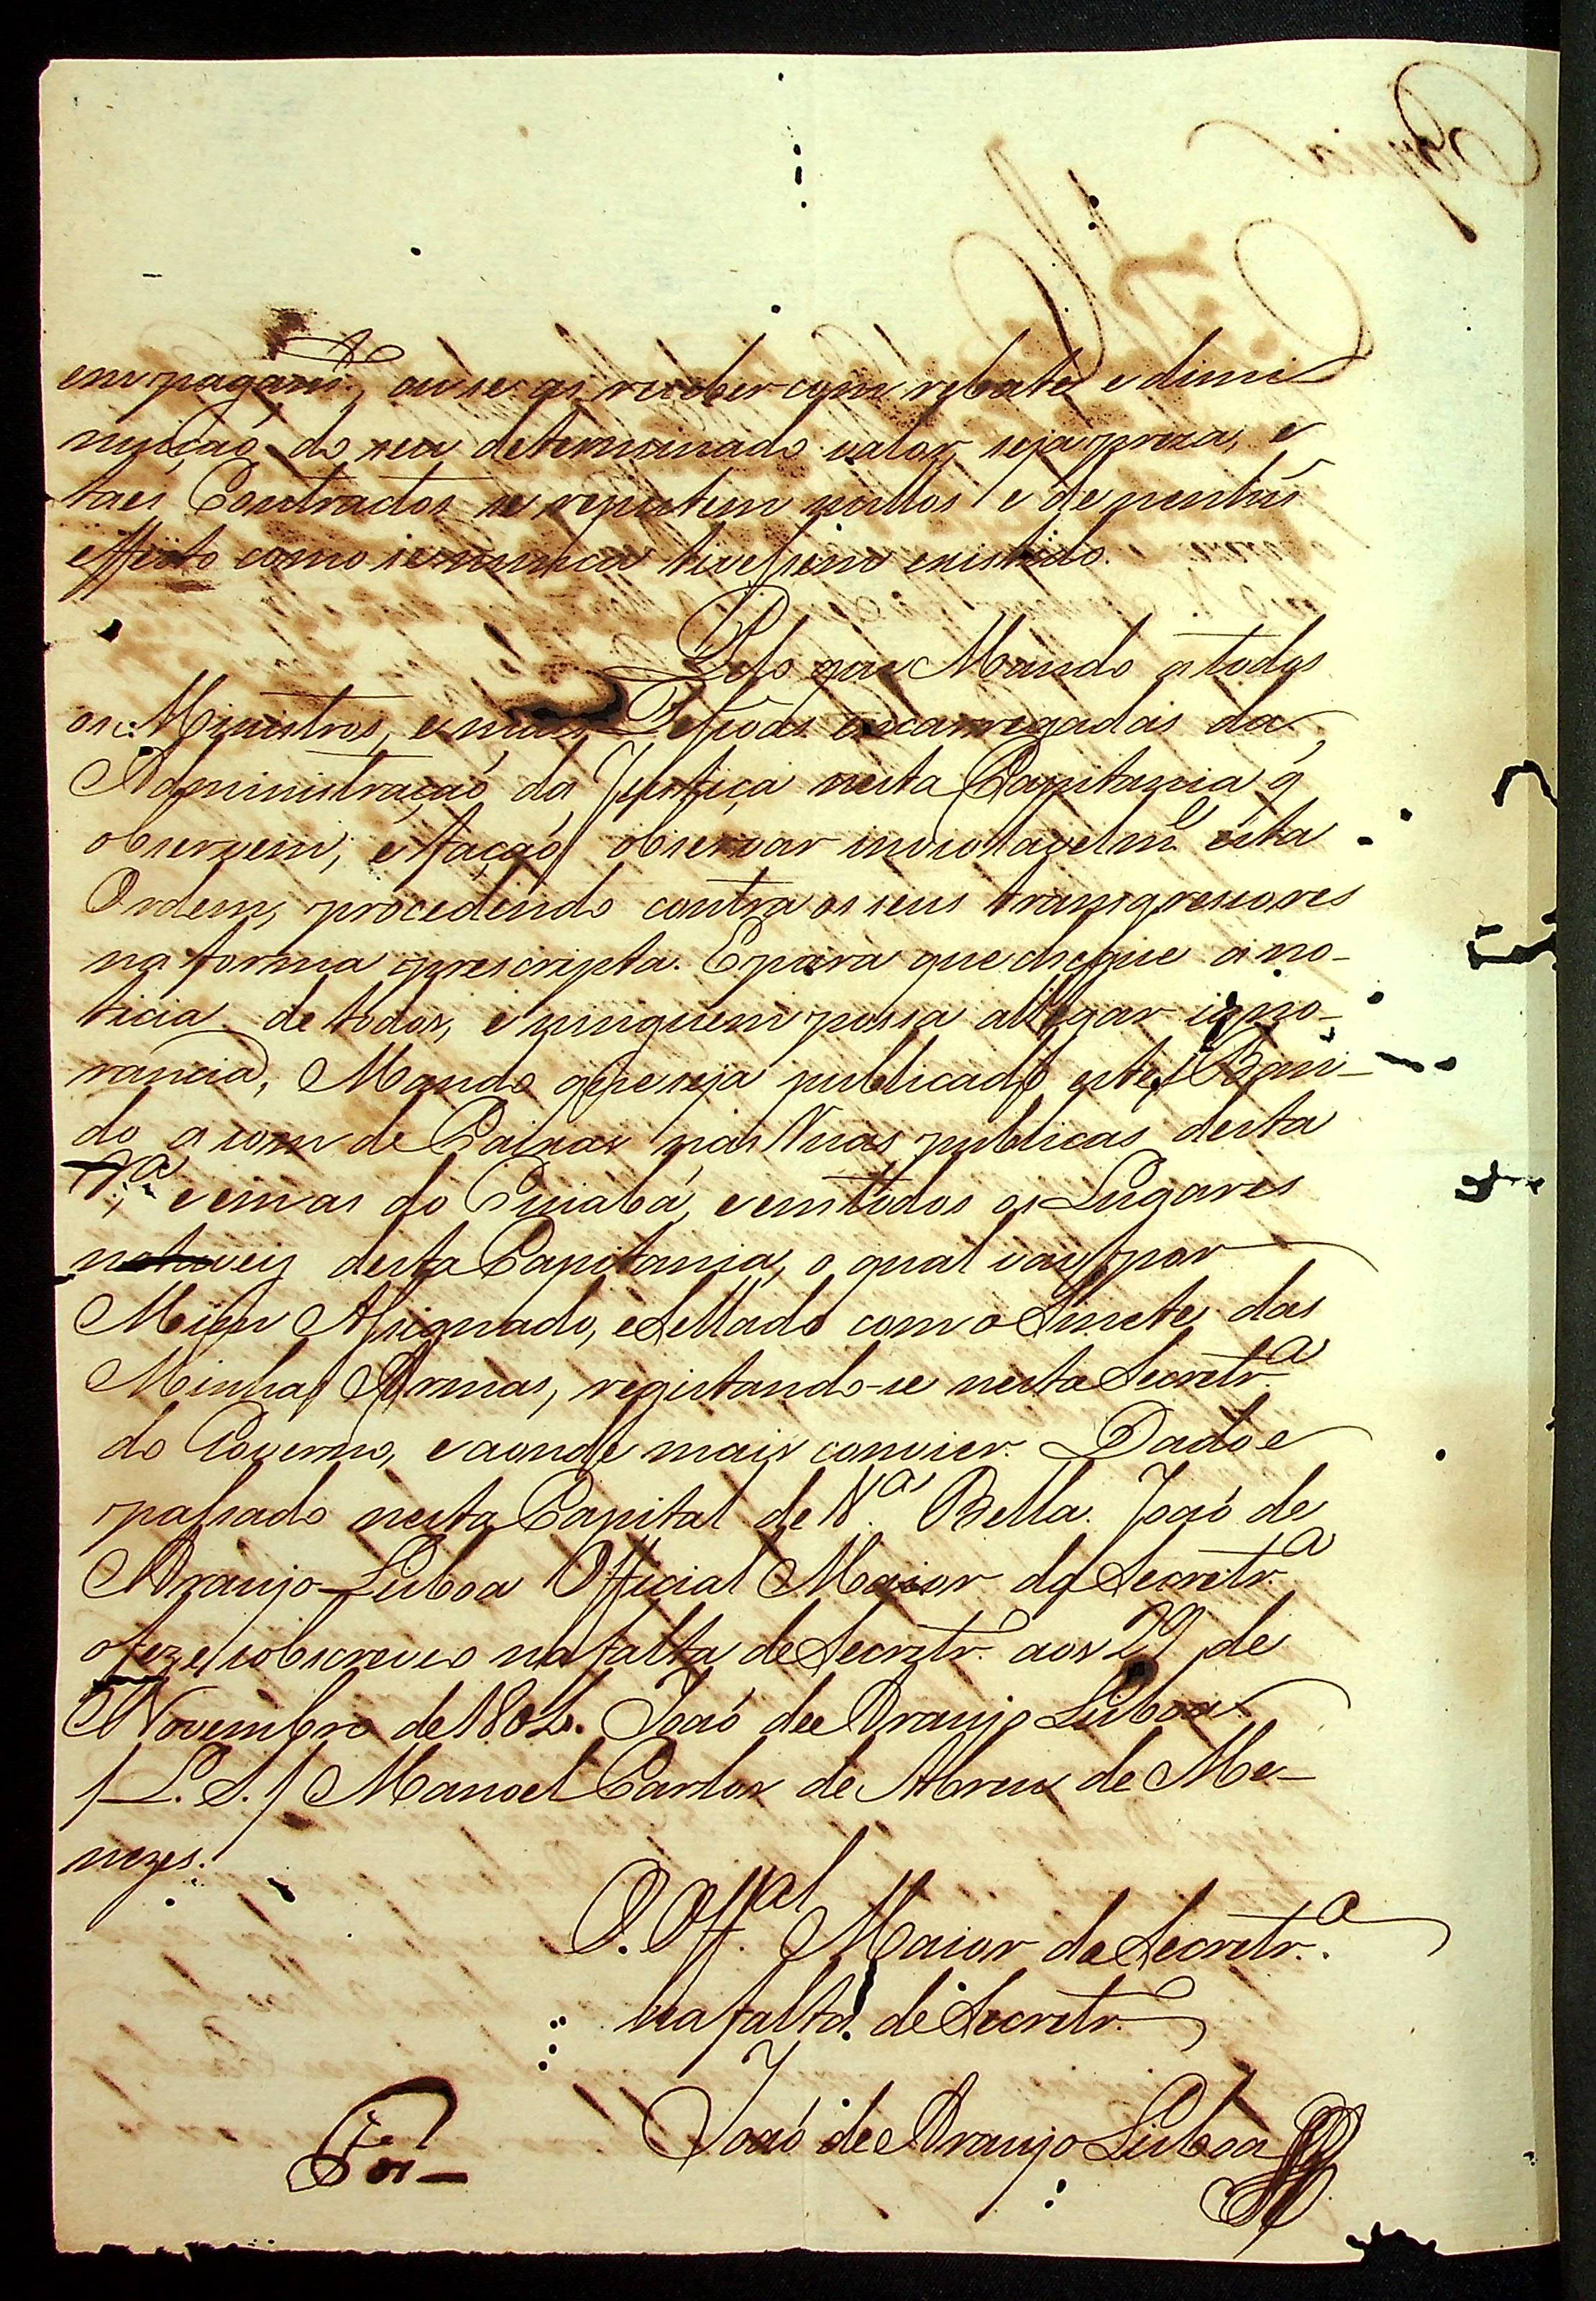 em pagam.to, ou se as receber com rebate, e dimi-
nuiçaõ do seu determinado valor, seja preza, e
taes Contractos se reputem nullos e de nenhũ
effeito como se nunca tivessem existido.
Pelo que Mando a todos
os Ministros, e mais Pessoas encarregadas da
Administraçaõ da Justiça nesta Capitania q̃
observem, e façaõ observar inviolavelm.e esta
Ordem, procedendo contra os seus transgressores
na forma prescripta. E para que chegue á no-
ticia de todos, e ninguem possa allegar igno-
rancia, Mando que seja publicado este Ban-
do a som de Caixas nas Ruas publicas desta
V.a, e em as do Cuiabá, e em todos os Lugares
notaveis desta Capitania, o qual vay por
Mim Assignado, e Sellado com o Sinete das
Minhas Armas, registando-se nesta Secretr.a
do Governo, e aonde mais convier. Dado e
passado nesta Capital de V.a Bella. Joaõ de
Araujo Lisboa Official Maior da Secretr.a
o fez e sobscreveo na falta de Secretr.o aos 29 de
Novembro de 1802. Joaõ de Araujo Lisboa
/ L. S. / Manoel Carlos de Abreu de Me-
nezes.
O Off.al Maior da Secretr.a
na falta de Secretr.o
Joaõ de Araujo Lisboa